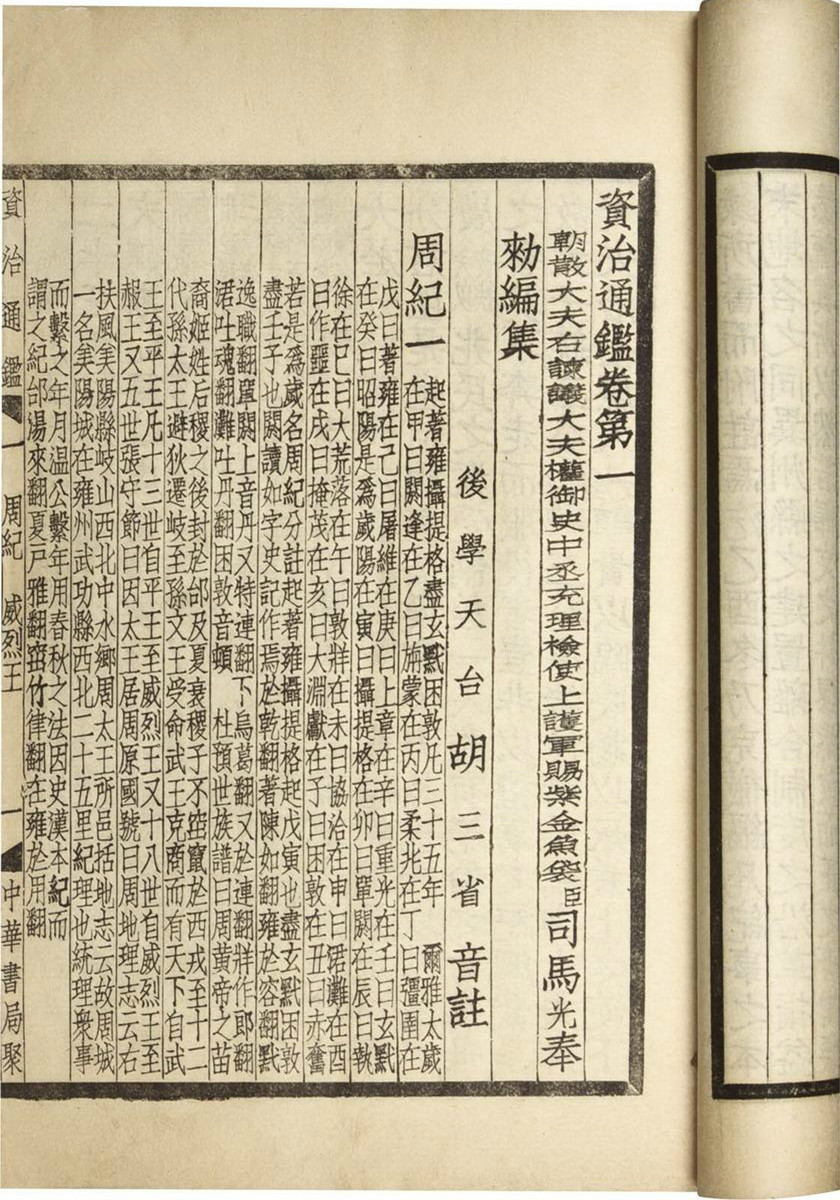 資治通鑑卷第一
朝散大夫右諫議大夫權御史中丞充理檢使上護軍賜紫金魚袋臣司馬光奉
勑編集
後學天台胡三省音註
周紀一
起著雍攝提格盡玄黓困敦凡三十五年　爾雅太歲
在甲曰閼逢在乙曰旃蒙在丙曰柔兆在丁曰彊圉在
戊曰著雍在己曰屠維在庚曰上章在辛曰重光在壬曰玄黓
在癸曰昭陽是爲歲陽在寅曰攝提格在卯曰單閼在辰曰執
徐在巳曰大荒落在午曰敦牂在未曰協洽在申曰涒灘在酉
曰作噩在戌曰掩茂在亥曰大淵獻在子曰困敦在丑曰赤奮
若是爲歲名周紀分註起著雍攝提格起戊寅也盡玄黓困敦
盡壬子也閼讀如字史記作焉於乾翻著陳如翻雍於容翻黓
逸職翻單閼上音丹又特連翻下烏葛翻又於連翻牂作郎翻
涒吐魂翻灘吐丹翻困敦音頓　杜預世族譜曰周黃帝之苗
裔姬姓后稷之後封於邰及夏衰稷子不窋竄於西戎至十二
代孫太王避狄遷岐至孫文王受命武王克商而有天下自武
王至平王凡十三世自平王至威烈王又十八世自威烈王至
赧王又五世張守節曰因太王居周原國號曰周地理志云右
扶風美陽縣岐山西北中水鄉周太王所邑括地志云故周城
一名美陽城在雍州武功縣西北二十五里紀理也統理衆事
而繫之年月溫公繫年用春秋之法因史漢本紀而
謂之紀邰湯來翻夏戶雅翻窋竹律翻在雍於用翻
資治通鑑　一　周紀　威烈王　一　中華書局聚